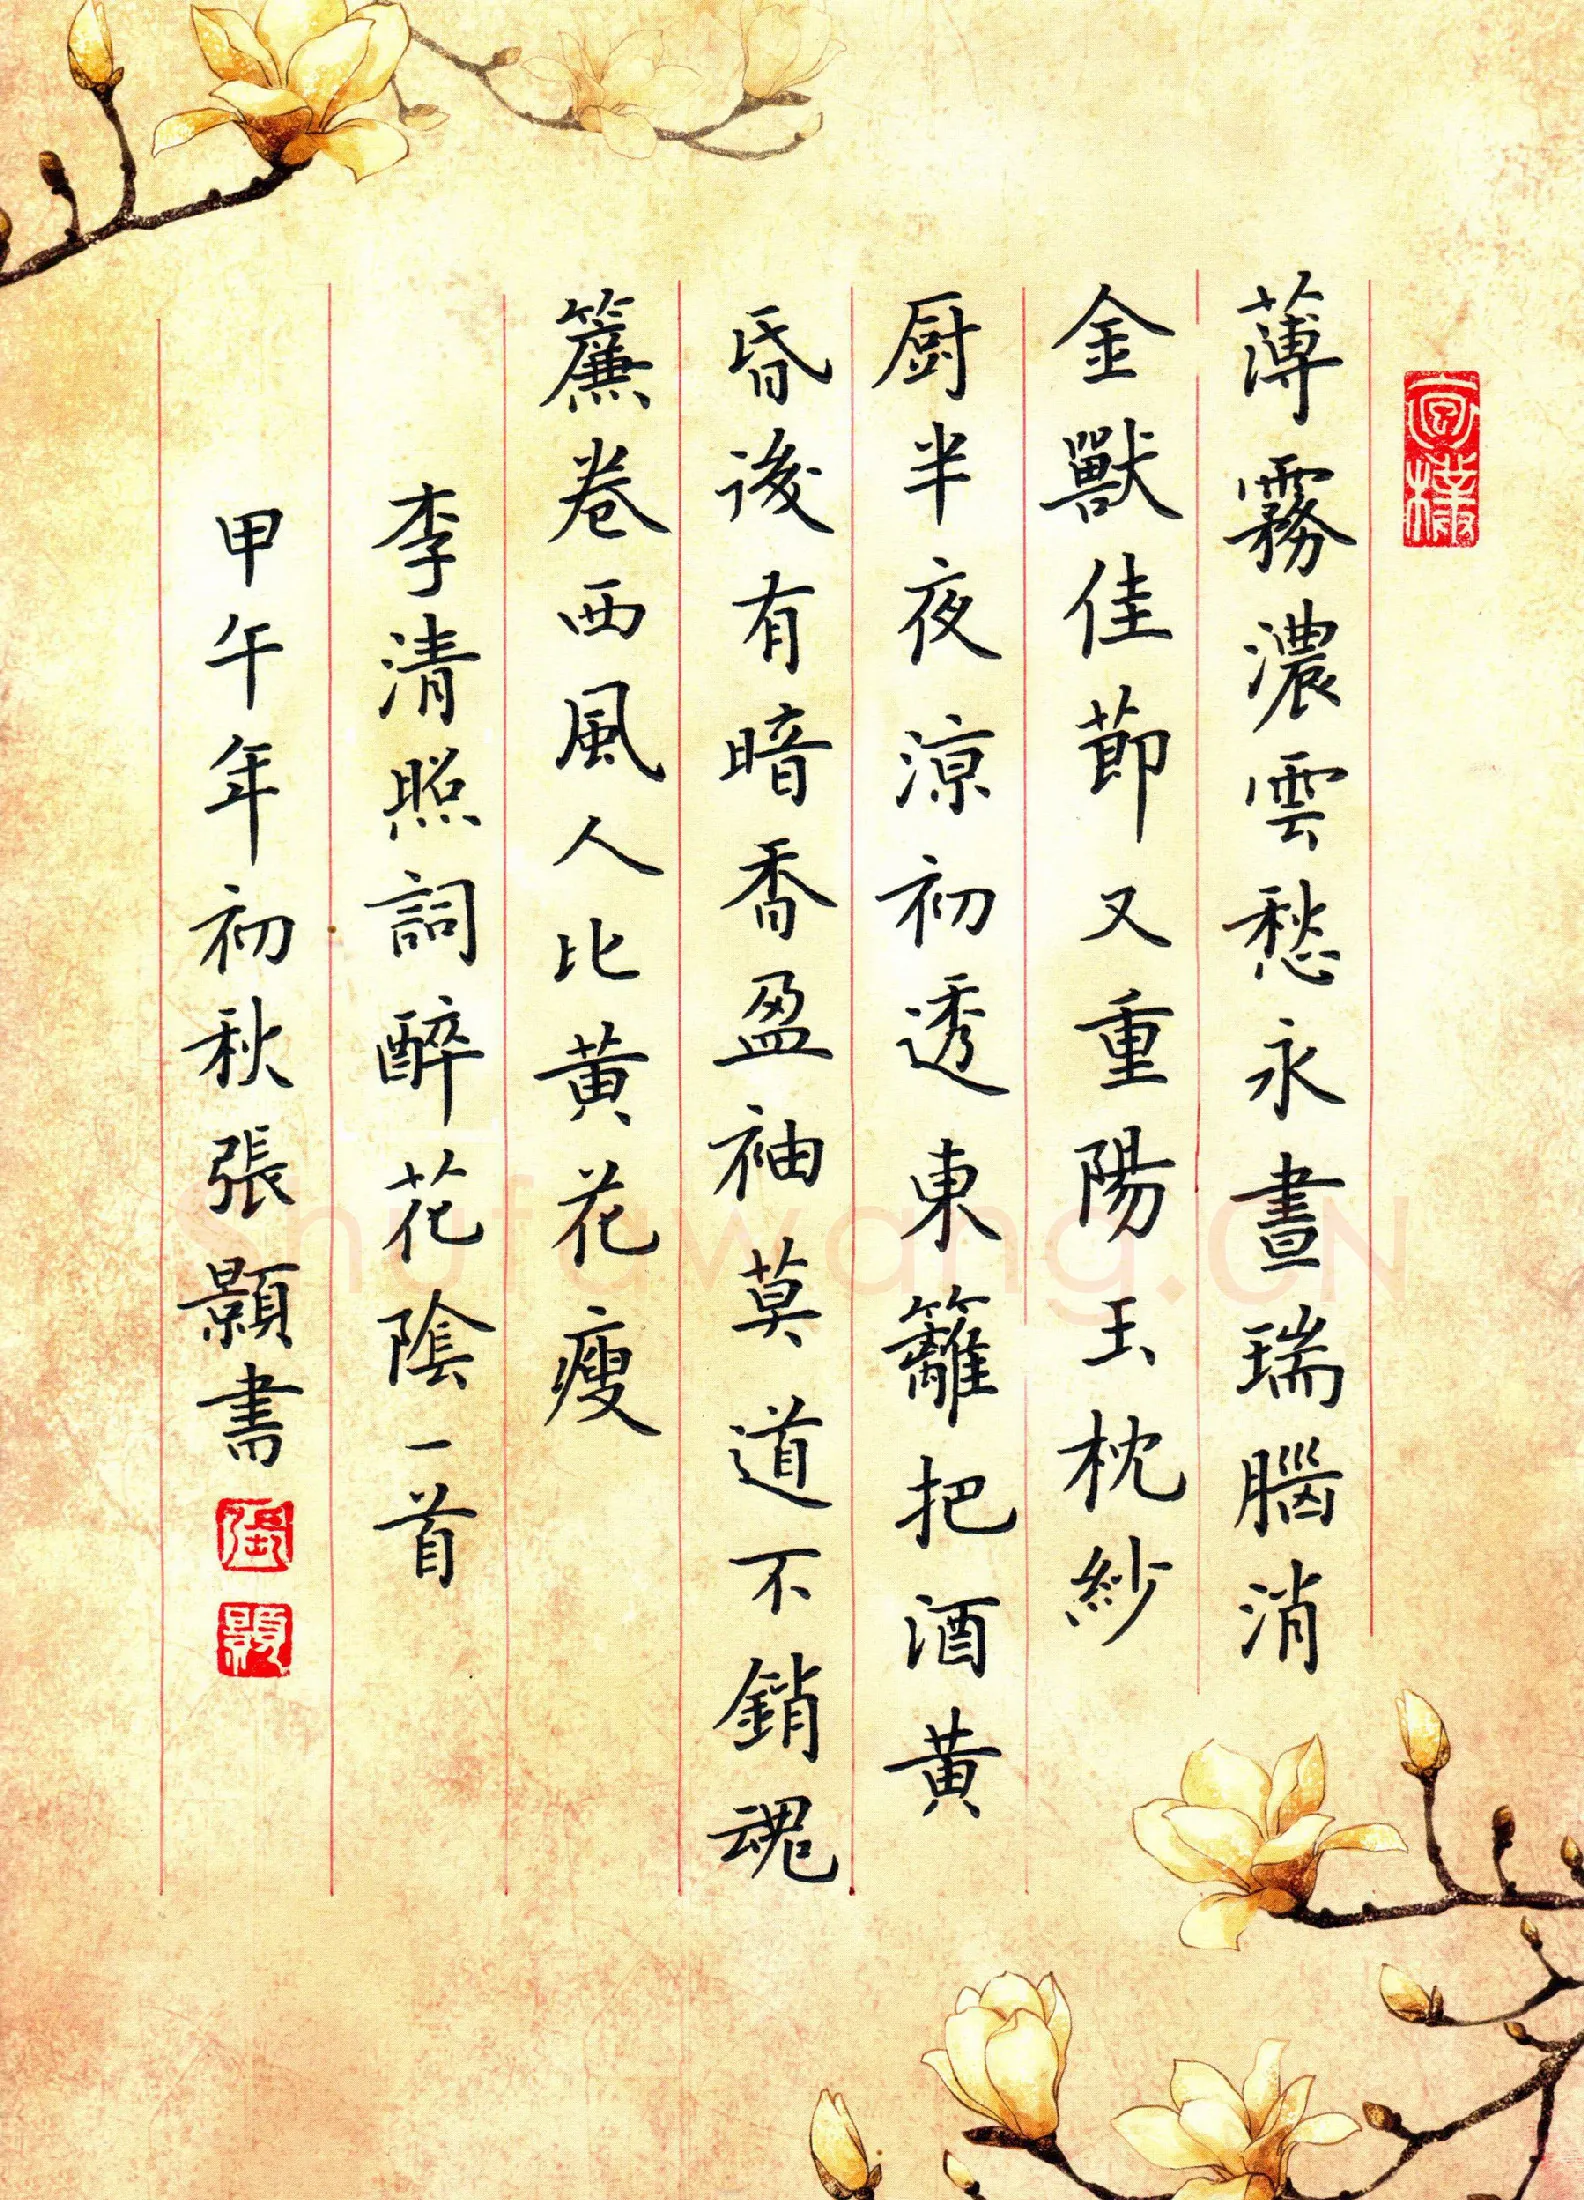 薄霧濃雲愁永晝瑞腦消
金獸佳節又重陽玉枕紗
厨半夜涼初透東籬把酒黄
昏後有暗香盈袖莫道不銷魂
簾卷西風人比黄花瘦
李清照詞醉花陰一首
甲午年初秋張顥書
張
顥
Shufawang.CN